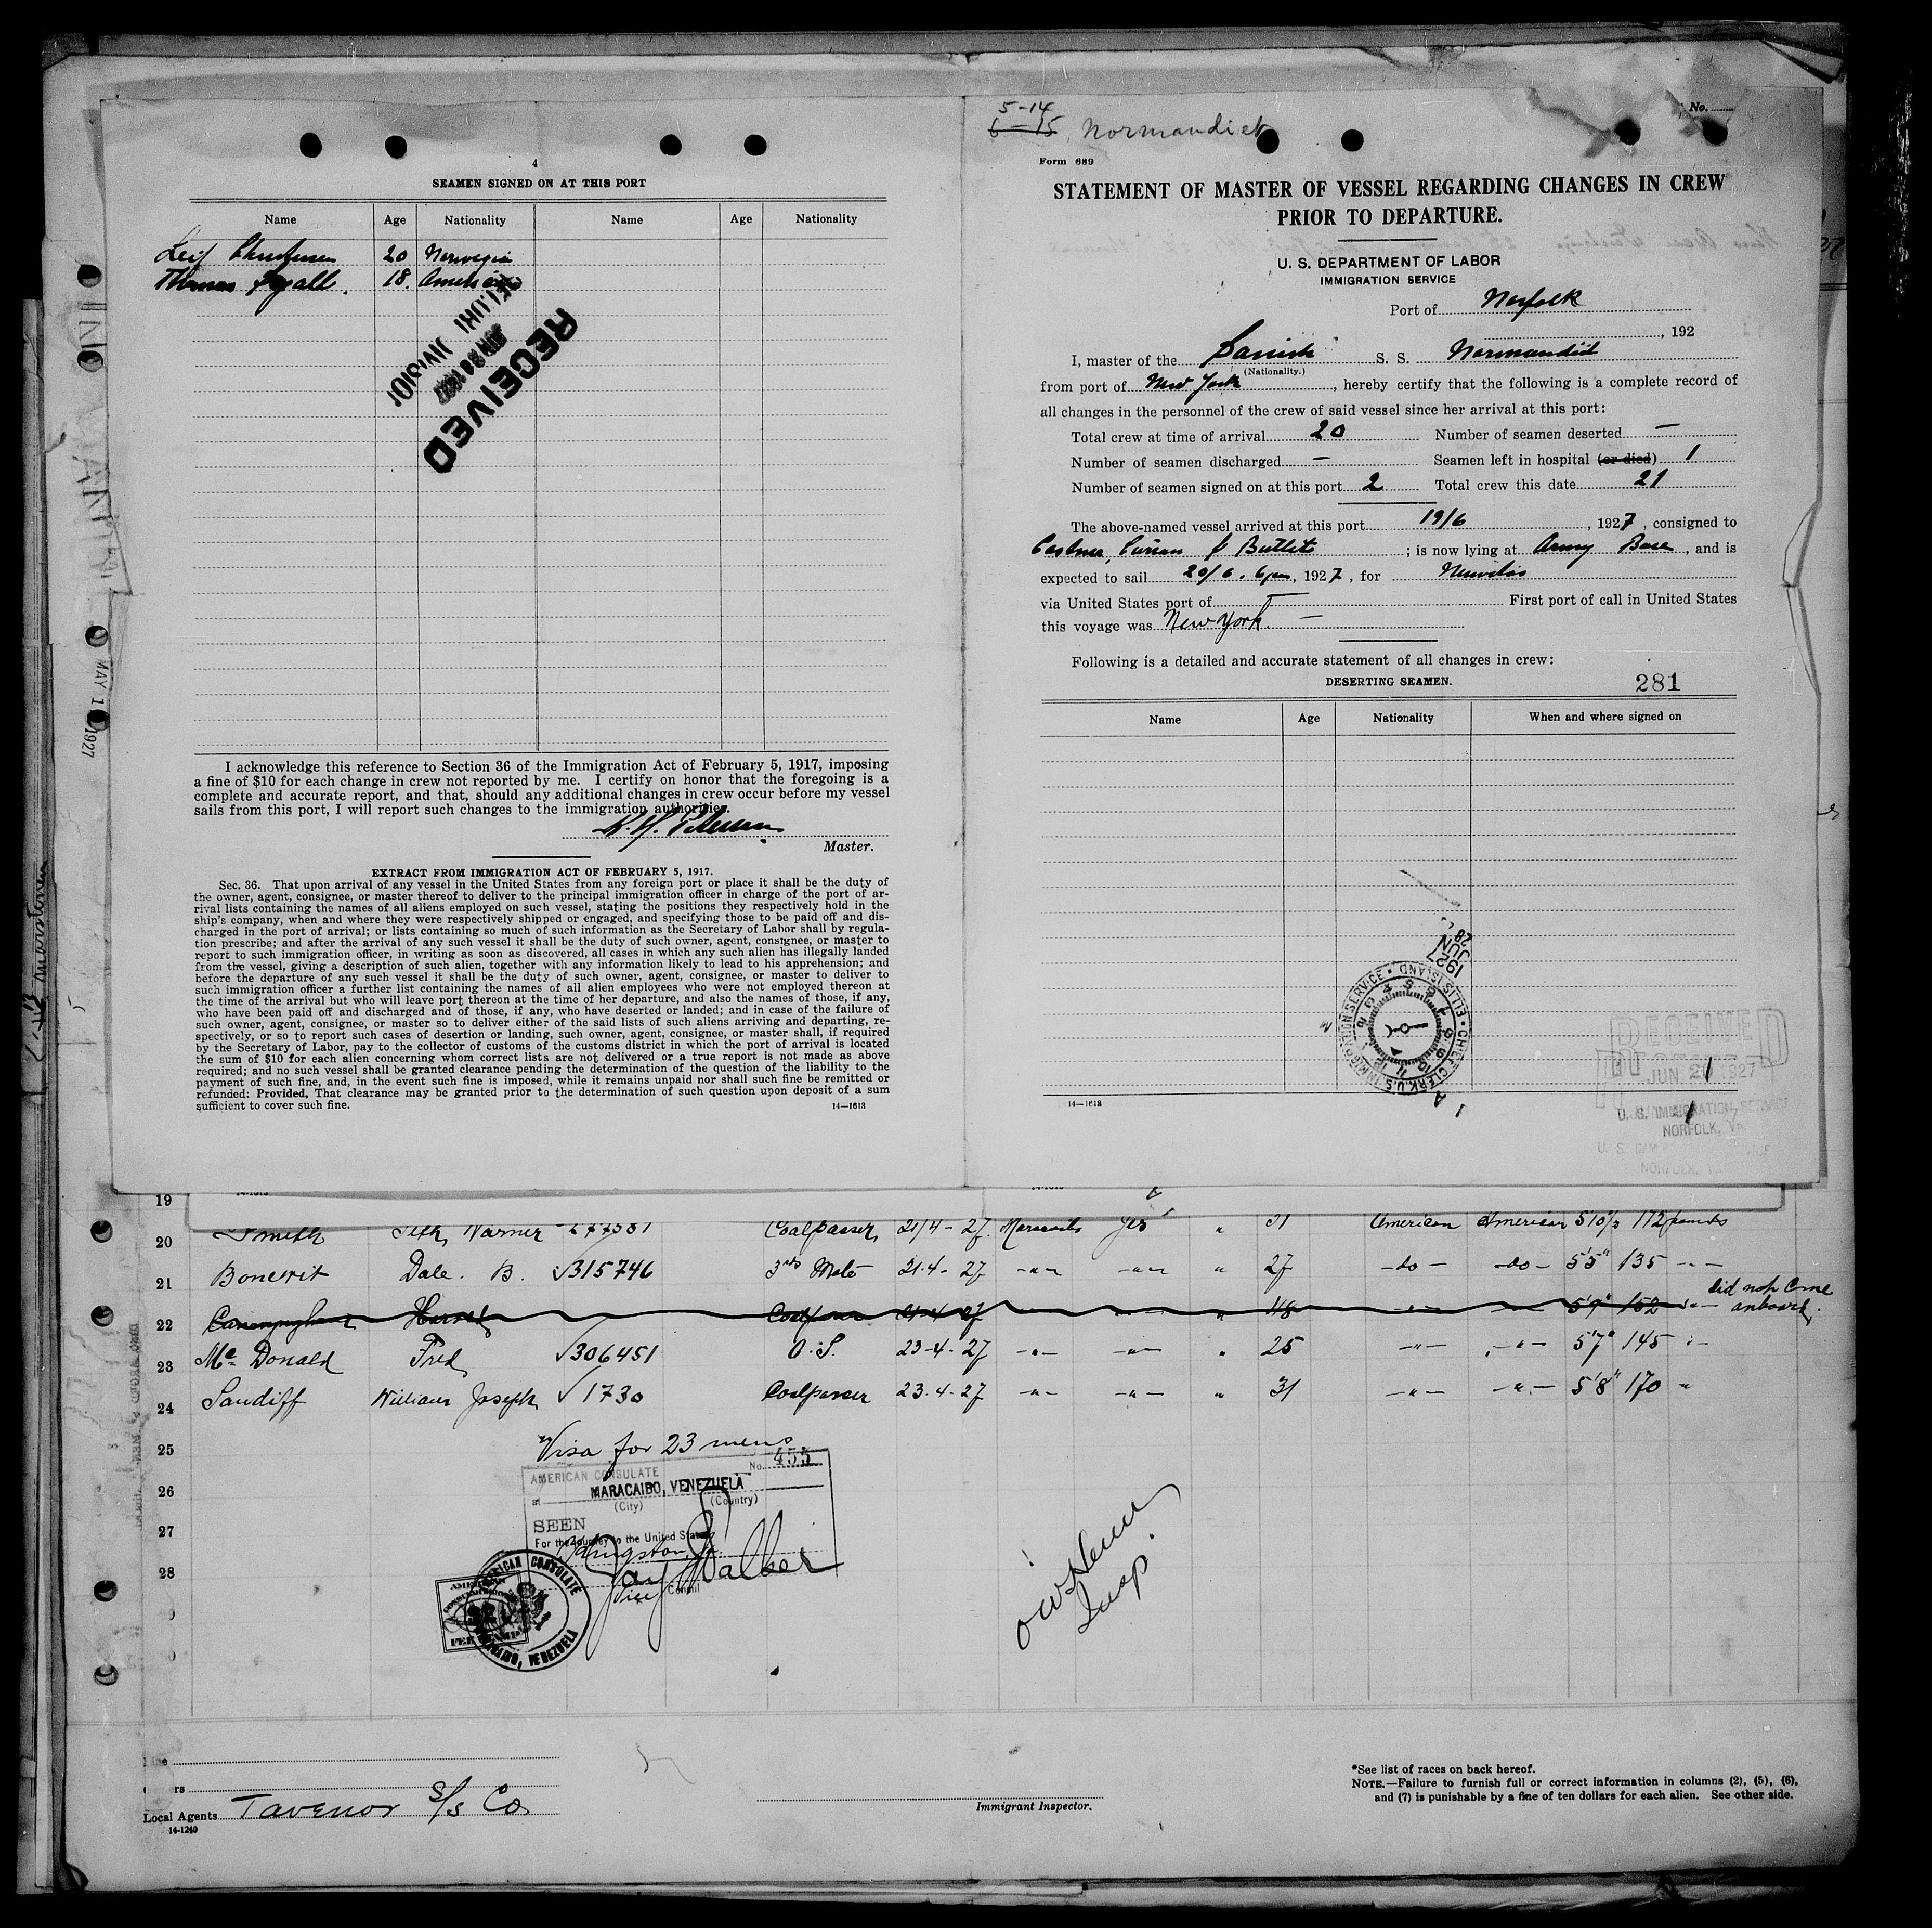 4
SEAMEN SIGNED ON AT THIS PORT
Name Age Nationality Name Age Nationality
Leif Christensen 20 Norwegian
Thomas 18. American
RECEIVED
DIVISION
I acknowledge this reference to Section 36 of the Immigration Act of February 5, 1917, imposing
a fine of $10 for each change in crew not reported by me. I certify on honor that the foregoing is a
complete and accurate report, and that, should any additional changes in crew occur before my vessel
sails from this port, I will report such changes to the immigration authorities.
Petersen
Master.
EXTRACT FROM IMMIGRATION ACT OF FEBRUARY 5, 1917.
Sec. 36. That upon arrival of any vessel in the United States from any foreign port or place it shall be the duty of
the owner, agent, consignee, or master thereof to deliver to the principal immigration officer in charge of the port of ar-
rival lists containing the names of all aliens employed on such vessel, stating the positions they respectively hold in the
ship's company, when and where they were respectively shipped or engaged, and specifying those to be paid off and dis-
charged in the port of arrival; or lists containing so much of such information as the Secretary of Labor shall by regula-
tion prescribe; and after the arrival of any such vessel it shall be the duty of such owner, agent, consignee, or master to
report to such immigration officer, in writing as soon as discovered, all cases in which any such alien has illegally landed
from the vessel, giving a description of such alien, together with any information likely to lead to his apprehension; and
before the departure of any such vessel it shall be the duty of such owner, agent, consignee, or master to deliver to
such immigration officer a further list containing the names of all alien employees who were not employed thereon at
the time of the arrival but who will leave port thereon at the time of her departure, and also the names of those, if any,
who have been paid off and discharged and of those, if any, who have deserted or landed; and in case of the failure of
such owner, agent, consignee, or master so to deliver either of the said lists of such aliens arriving and departing, re-
spectively, or so to report such cases of desertion or landing, such owner, agent, consignee, or master shall, if required
by the Secretary of Labor, pay to the collector of customs of the customs district in which the port of arrival is located
the sum of $10 for each alien concerning whom correct lists are not delivered or a true report is not made as above
required; and no such vessel shall be granted clearance pending the determination of the question of the liability to the
payment of such fine, and, in the event such fine is imposed, while it remains unpaid nor shall such fine be remitted or
refunded: Provided, That clearance may be granted prior to the determination of such question upon deposit of a sum
sufficient to cover such fine.
14—1613
5-14
6-15, Normandiet
No.
Form 689
STATEMENT OF MASTER OF VESSEL REGARDING CHANGES IN CREW
PRIOR TO DEPARTURE.
U. S. DEPARTMENT OF LABOR
IMMIGRATION SERVICE
Port of Norfolk
, 192
I, master of the Danish S. S. Normandiet
(Nationality.)
from port of New York, hereby certify that the following is a complete record of
all changes in the personnel of the crew of said vessel since her arrival at this port:
Total crew at time of arrival 20 Number of seamen deserted —
Number of seamen discharged — Seamen left in hospital (or died) 1
Number of seamen signed on at this port 2 Total crew this date 21
The above-named vessel arrived at this port 19/6, 1927, consigned to
Castner, Curran & Bullitt; is now lying at Army Base, and is
expected to sail 20/6. 6pm, 1927, for Nuevitas
via United States port of — First port of call in United States
this voyage was New York. —
Following is a detailed and accurate statement of all changes in crew:
DESERTING SEAMEN. 281
Name Age Nationality When and where signed on
1927
JUN
28
CHIEF CLERK, U.S. IMMIGRATION SERVICE • ELLIS ISLAND
14—1613
RECEIVED
JUN 1927
U. S. IMMIGRATION SERVICE
NORFOLK, Va
MAY 1 1927
19
20 Smith Seth Warner 277381 Coalpasser 21/4-27. Maracaibo yes " 31 American American 5'10½ 172 pounds
21 Bonewit Dale. B. √315746 3rd Mate 21.4-27 -"- -"- " 27 -do- -do- 5'5" 135 -"-
22 Coalpasser 21-4-27 " 48 -"- 5'9" 152 -"- did not come
onboard.
23 Mc Donald Fred √306451 O.S. 23-4-27 -"- -"- " 25 -"- -"- 5'7" 145 -"-
24 Sandiff William Joseph √1730 Coalpasser 23.4-27 -"- -"- " 31 -"- -"- 5'8" 170 "
25
26
27
28
Visa for 23 mens
AMERICAN CONSULATE No. 455
at MARACAIBO, VENEZUELA
(City) (Country)
SEEN
For the Journey to the United States
Jay Walker
Vice Consul
AMERICAN CONSULATE
MARACAIBO, VENEZUELA
FEE STAMP
Insp.
Local Agents Tavenor S/S Co
14-1240
Immigrant Inspector.
*See list of races on back hereof.
NOTE.—Failure to furnish full or correct information in columns (2), (5), (6),
and (7) is punishable by a fine of ten dollars for each alien. See other side.